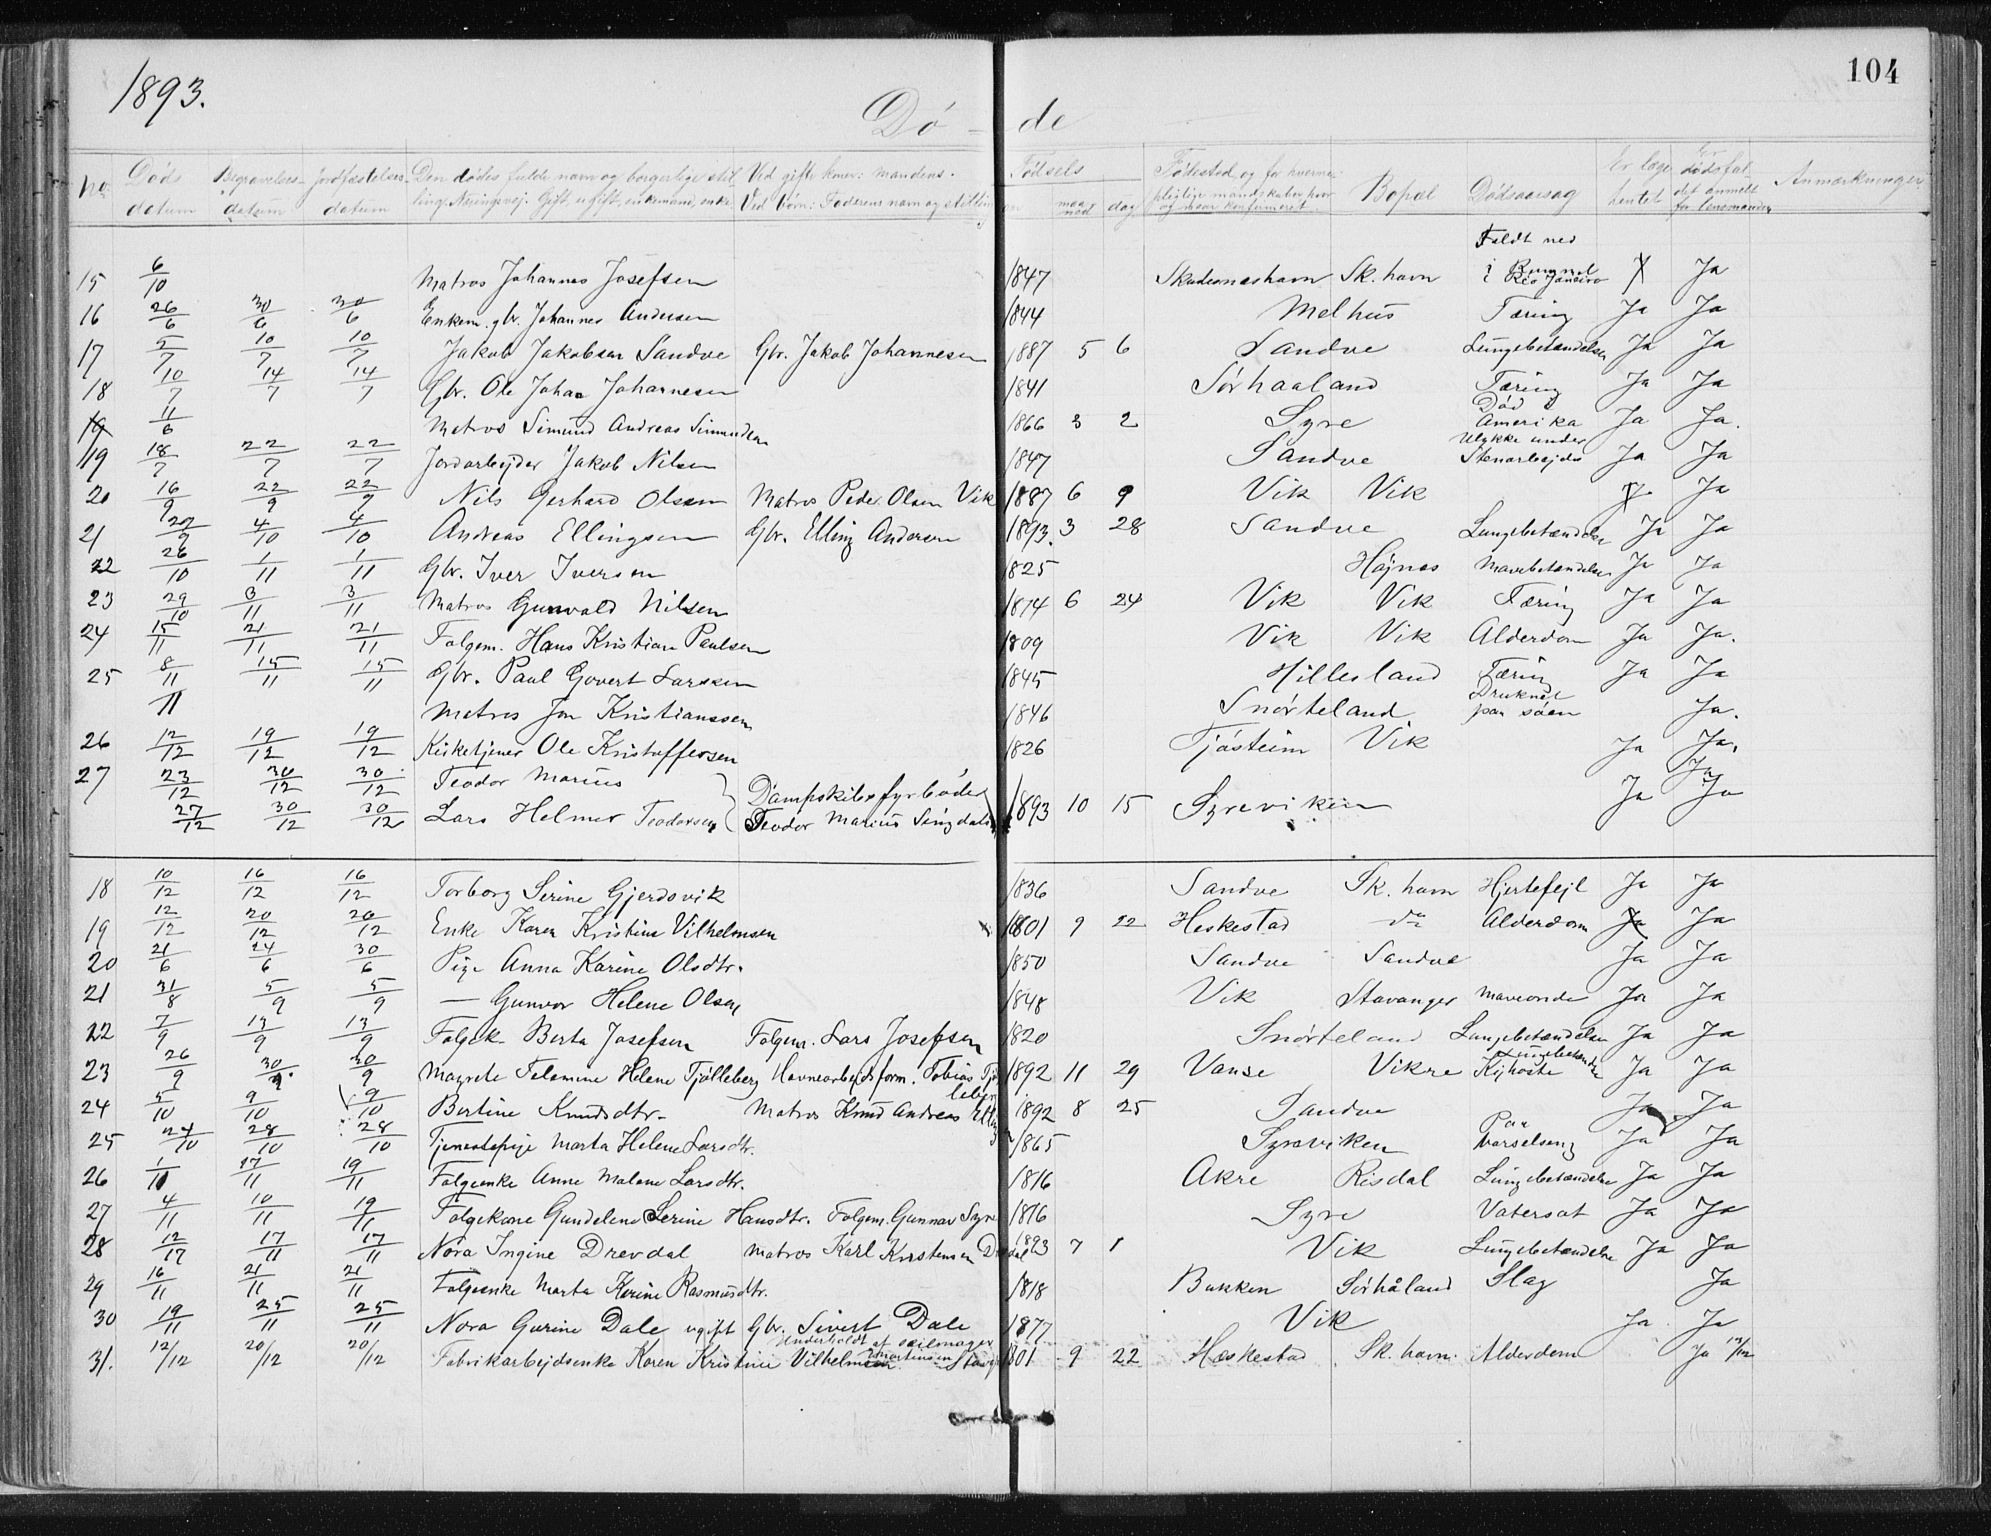 1893.
104
Dø - de
No. Døds datum Begravelses datum Jordfæstelses datum Den dødes fulde navn og borgerlige stilling. Næringsvej. Gift, ugift, enkemand, enke Ved gifte koner: mandens. Ved børn: Faderens navn og stilling Fødsels maaned dag Fødested, og for og naar konfirmeret Bopæl Dødsaarsag Er læge hentet Er dødsfaldet anmeldt for lensmanden Anmærkninger
Faldt ned
15 6/10 Matros Johannes Josefsen 1847 Skudesneshavn Sk. havn i Rummet i Rio Janeiro Ja
16 26/6 30/6 30/6 Enkem. gbr. Johannes Andersen 1844 Melhus Tæring Ja Ja
17 5/7 10/7 10/7 Jakob Jakobsen Sandve Gbr. Jakob Johannesen 1887 5 6 Sandve Lungebetændelse Ja Ja
18 10/7 14/7 14/7 Gbr. Ole Johan Johannesen 1841 Sørhaaland Tæring Ja Ja
19 11/6 Matros Simund Andreas Simundsen 1866 3 2 Syre Død i Amerika Ja Ja.
19 18/7 22/7 22/7 Jordarbejder Jakob Nilsen 1847 Sandve Ulykke under Stenarbejde Ja Ja
20 16/9 22/9 22/9 Nils Gerhard Olsen Matros Peder Olsen Vik 1887 6 9 Vik Vik Ja
21 4/10 4/10 Andreas Ellingsen Gbr. Elling Andersen 1893. 3 28 Sandve Lungebetændelse Ja Ja
22 26/10 1/11 1/11 Gbr. Iver Iversen 1825 Højnes Mavebetændelse Ja Ja
23 29/10 3/11 3/11 Matros Gunvald Nilsen 1874 6 24 Vik Vik Tæring Ja Ja
24 15/11 21/11 21/11 Folgem. Hans Kristian Paulsen 1809 Vik Vik Alderdom Ja Ja.
25 8/11 15/11 15/11 Gbr. Paul Govert Larsen 1845 Hillesland Tæring Ja Ja
11 Matros Jon Kristianssen 1846 Snørteland Druknet paa søen Ja.
26 12/12 19/12 19/12 Kirketjener Ole Kristoffersen 1826 Tjøsteim Vik Ja Ja.
27 23/12 30/12 30/12 Teodor Marius Dampskibsfyrbøder Ja
27/12 30/12 30/12 Lars Helmer Teodorsen Teodor Marius 1893 10 15 Syreviken Ja Ja
18 10/12 16/12 16/12 Torborg Serine Gjerdsvik 1836 Sandve Sk. havn Hjertefejl Ja Ja
19 12/12 20/12 20/12 Enke Karen Kristine Vilhelmsen 1801 9 22 Heskestad do Alderdom Ja Ja
20 21/6 24/6 30/6 Pige Anna Karine Olsdtr. 1850 Sandve Sandve Ja Ja
21 31/8 5/9 5/9 — Gunvor Helene Olsen 1848 Vik Stavanger Maveonde Ja Ja
22 7/9 13/9 13/9 Folgek. Berta Josefsen Folgem. Lars Josefsen 1820 Snørteland Lungebetændelse Ja Ja
23 26/9 30/9 30/9 Magrete Telamine Helene Tjølleberg Havnearbejdsform. Tobias 1892 11 29 Vanse Vikre Kighoste Ja Ja
24 5/10 9/10 9/10 Bertine Knudsdtr. Matros Knud Andreas 1892 8 25 Sandve Ja Ja
25 24/10 28/10 28/10 Tjenestepige Marta Helene Larsdtr. 1865 Syreviken Paa barselseng Ja Ja
26 1/11 17/11 19/11 Folgeenke Anne Malene Larsdtr. 1816 Akre Risdal Lungebetændelse Ja Ja
27 4/11 10/11 19/11 Folgekone Gundelene Serine Hansdtr. Folgem. Gunnar Syre 1816 Syre Vatersot Ja Ja
28 12/17 17/11 17/11 Nora Ingine Drevdal Matros Karl Kristensen Drevdal 1893 7 1 Vik Lungebetændelse Ja Ja
29 16/11 21/11 21/11 Folgeenke Marta Karine Rasmusdtr. 1818 Bakken Sørhåland Slag Ja
30 19/11 25/11 25/11 Nora Gurine Dale ugift Gbr. Sivert Dale 1877 Vik Ja Ja
Underholdt af seilmager
31. 12/12 20/12 20/12 Fabrikarbejdsenke Karen Kristine Vilhelmsen Martinsen 1801 9 22 Heskestad Sk. havn. Alderdom Ja 13/12